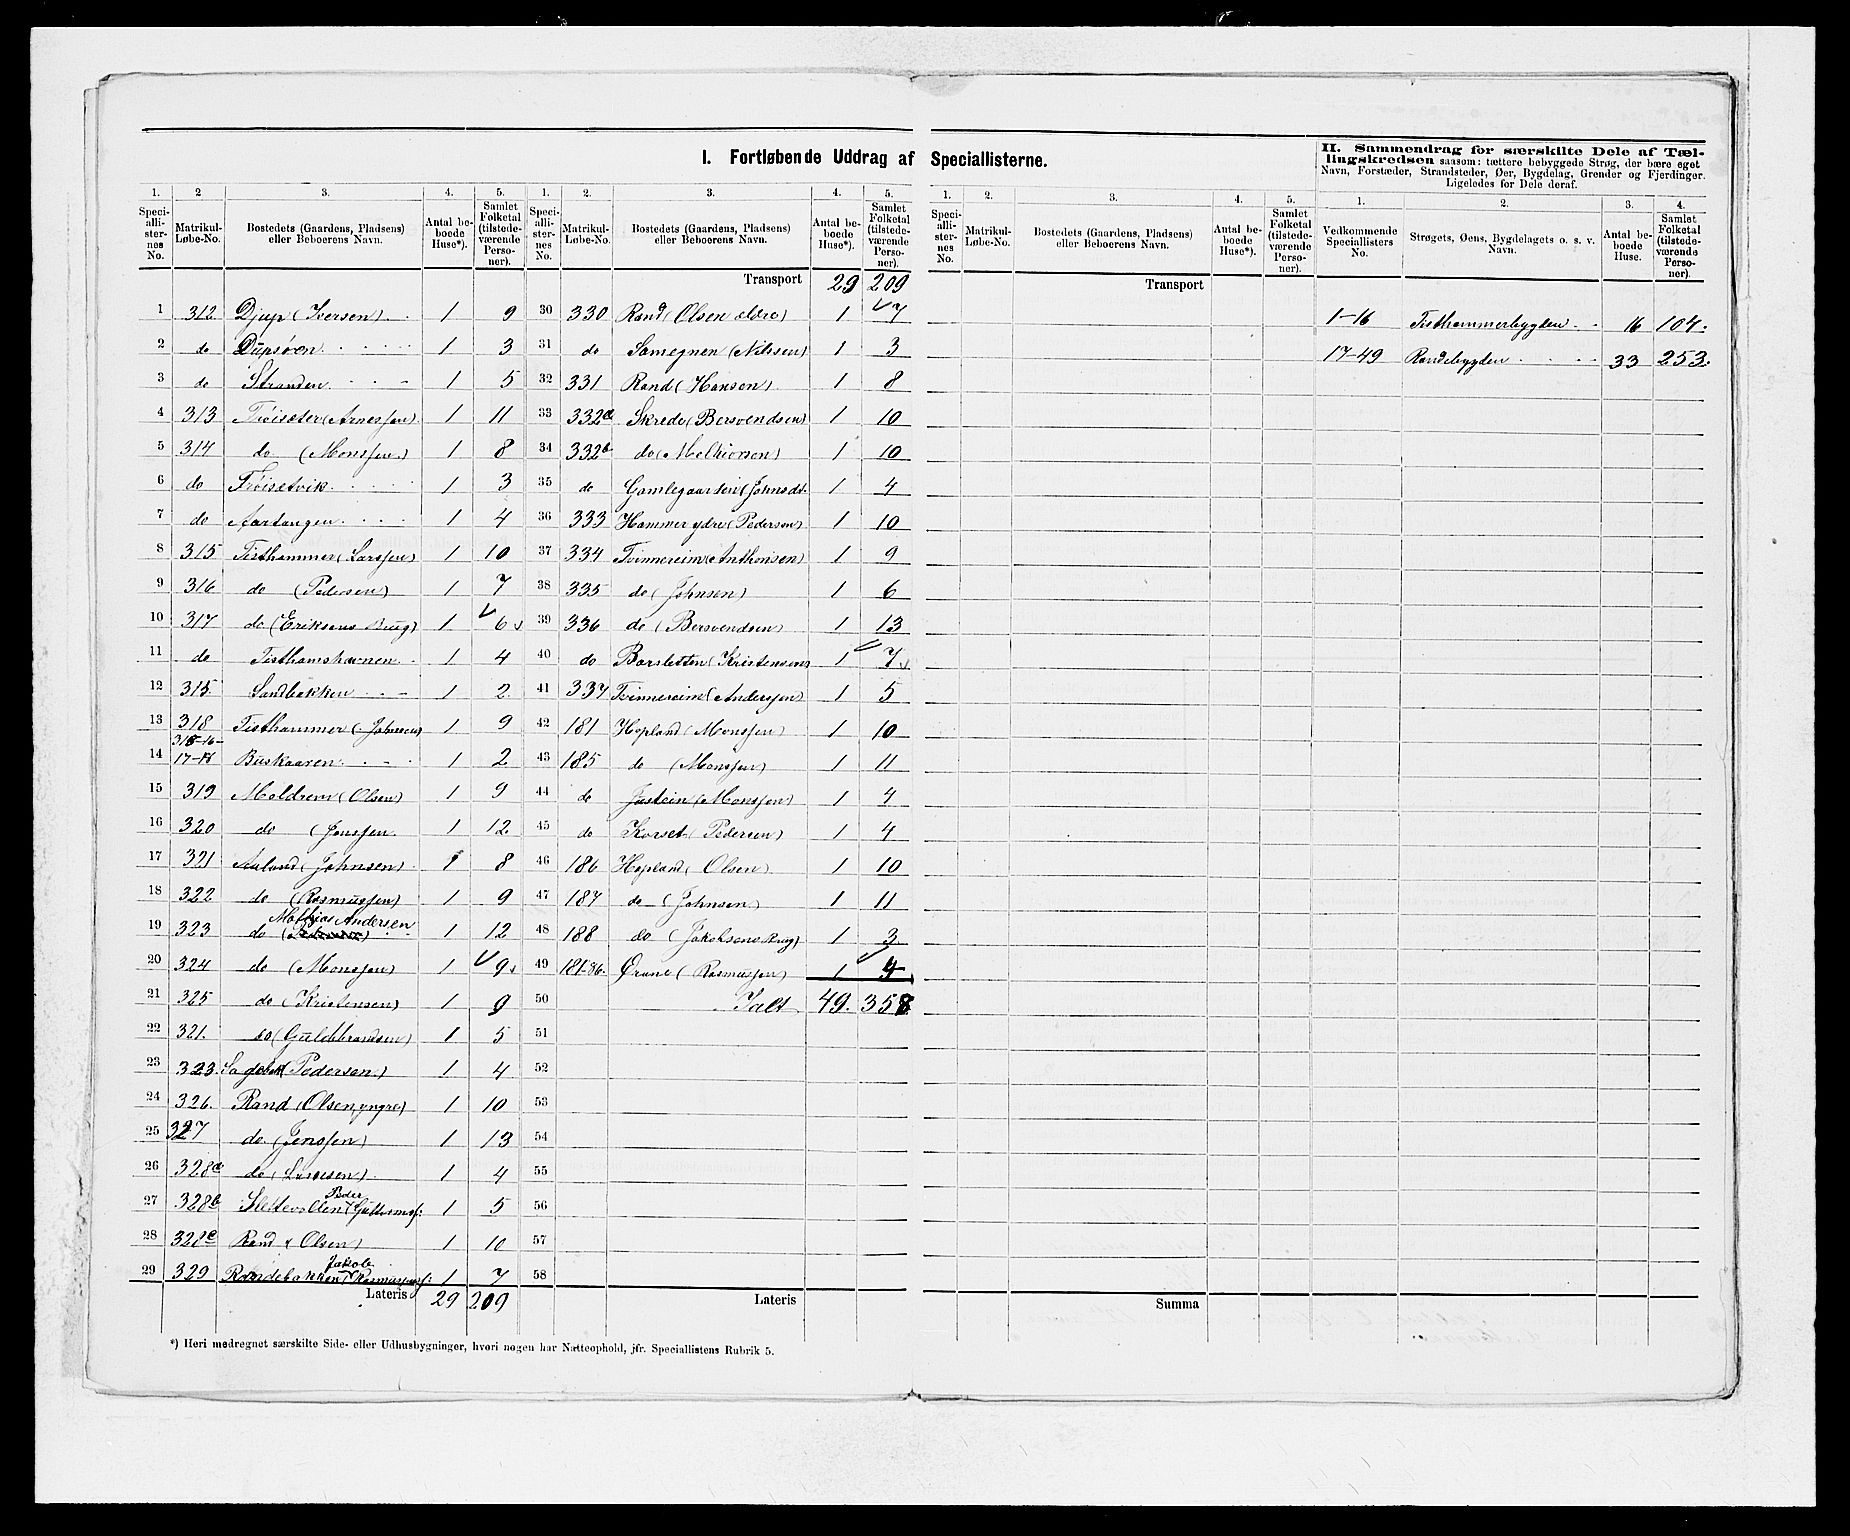 I. Fortløbende Uddrag af Speciallisterne.
II. Sammendrag for særskilte Dele af Tællingskredsen saasom: tættere bebyggede Strøg, der bære eget Navn, Forstæder, Strandsteder, Øer, Bygdelag, Grender og Fjerdinger. Ligeledes for Dele deraf.
1. 2 3. 4. 5. 1. 2. 3. 4. 5. 1. 2. 3. 4. 5. 1. 2. 3. 4.
Speciallisternes No. Matrikul-Løbe-No. Bostedets (Gaardens, Pladsens) eller Beboerens Navn. Antal beboede Huse*). Samlet Folketal (tilstedeværende Personer).
Speciallisternes No. Matrikul-Løbe-No. Bostedets (Gaardens, Pladsens) eller Beboerens Navn. Antal beboede Huse*). Samlet Folketal (tilstedeværende Personer).
Speciallisternes No. Matrikul-Løbe-No. Bostedets (Gaardens, Pladsens) eller Beboerens Navn. Antal beboede Huse*). Samlet Folketal (tilstedeværende Personer).
Vedkommende Speciallisters No. Strøgets, Øens, Bygdelagets o. s. v. Navn. Antal beboede Huse. Samlet Folketal (tilstedeværende Personer).
1 312 Djup (Iversen) 1 9
2 do Dupsøen 1 3
3 do Stranden 1 5
4 313 Frøiseter (Arnessen) 1 11
5 314 do (Monssen) 1 8
6 do Frøisetvik 1 3
7 do Aartangen 1 4
8 315 Tisthammer (Larssen) 1 10
9 316 do (Pedersen) 1 7
10 317 do (Eriksens Brug) 1 6
11 do Tisthamshavnen 1 4
12 315 Sandbakken 1 2
13 318 Tisthammer (Johnsen) 1 9
14 315-16-17-18 Buskaaren 1 2
15 319 Meldrem (Olsen) 1 9
16 320 do (Jonssen 1 12
17 321 Aaland (Johnsen) 1 8
18 322 do (Rasmussen) 1 9
19 323 do (Mathias Andersen 1 12
20 324 do (Monssen) 1 9
21 325 do (Kristensen) 1 9
22 321. do (Guldbrandsen) 1 5
23 323. (Pedersen) 1 4
24 326. Rand (Olsen yngre) 1 10
25 327 do (Jenssen) 1 13
26 328a do (Larssen) 1 4
27 328b Slettevollen (Peder Guttormsf: 1 5
28 328c Rand (Olsen) 1 10
29 329 Randebakken (Jakob Rasmussens: 1 7
Lateris 29 209
Transport 29 209
30 330 Rand (Olsen eldre) 1 7
31 do Samegnen (Nilssen) 1 3
32 331 Rand (Hansen) 1 8
33 332a Skrede (Bersvendsen) 1 10
34 332b do (Melkiorsen) 1 10
35 do Gamlegaarden (Johnsdt. 1 4
36 333 Hammer ydre (Pedersen) 1 10
37 334 Tvinnereim (Anthonsen) 1 9
38 335 do (Johnsen) 1 6
39 336 do (Bersvendsen) 1 13
40 do Barsletten (Kristensen) 1 7
41 337 Tvinnereim (Anderssen) 1 5
42 181 Hopland (Monssen) 1 10
43 185 do (Monssen) 1 11
44 do Justein (Monssen) 1 4
45 do Korset (Pedersen) 1 4
46 186 Hopland (Olsen) 1 10
47 187 do (Johnsen) 1 11
48 188 do (Jakobsens Brug) 1 3
49 181-86. Ørane (Rasmussen) 1 4
50 Ialt 49. 358
51
52
53
54
55
56
57
58
Lateris
Transport
Summa
1-16 Tisthammerbygden 16 104.
17-49 Randebygden 33 253.
*) Heri medregnet særskilte Side- eller Udhusbygninger, hvori nogen har Natteophold, jfr. Speciallistens Rubrik 5.